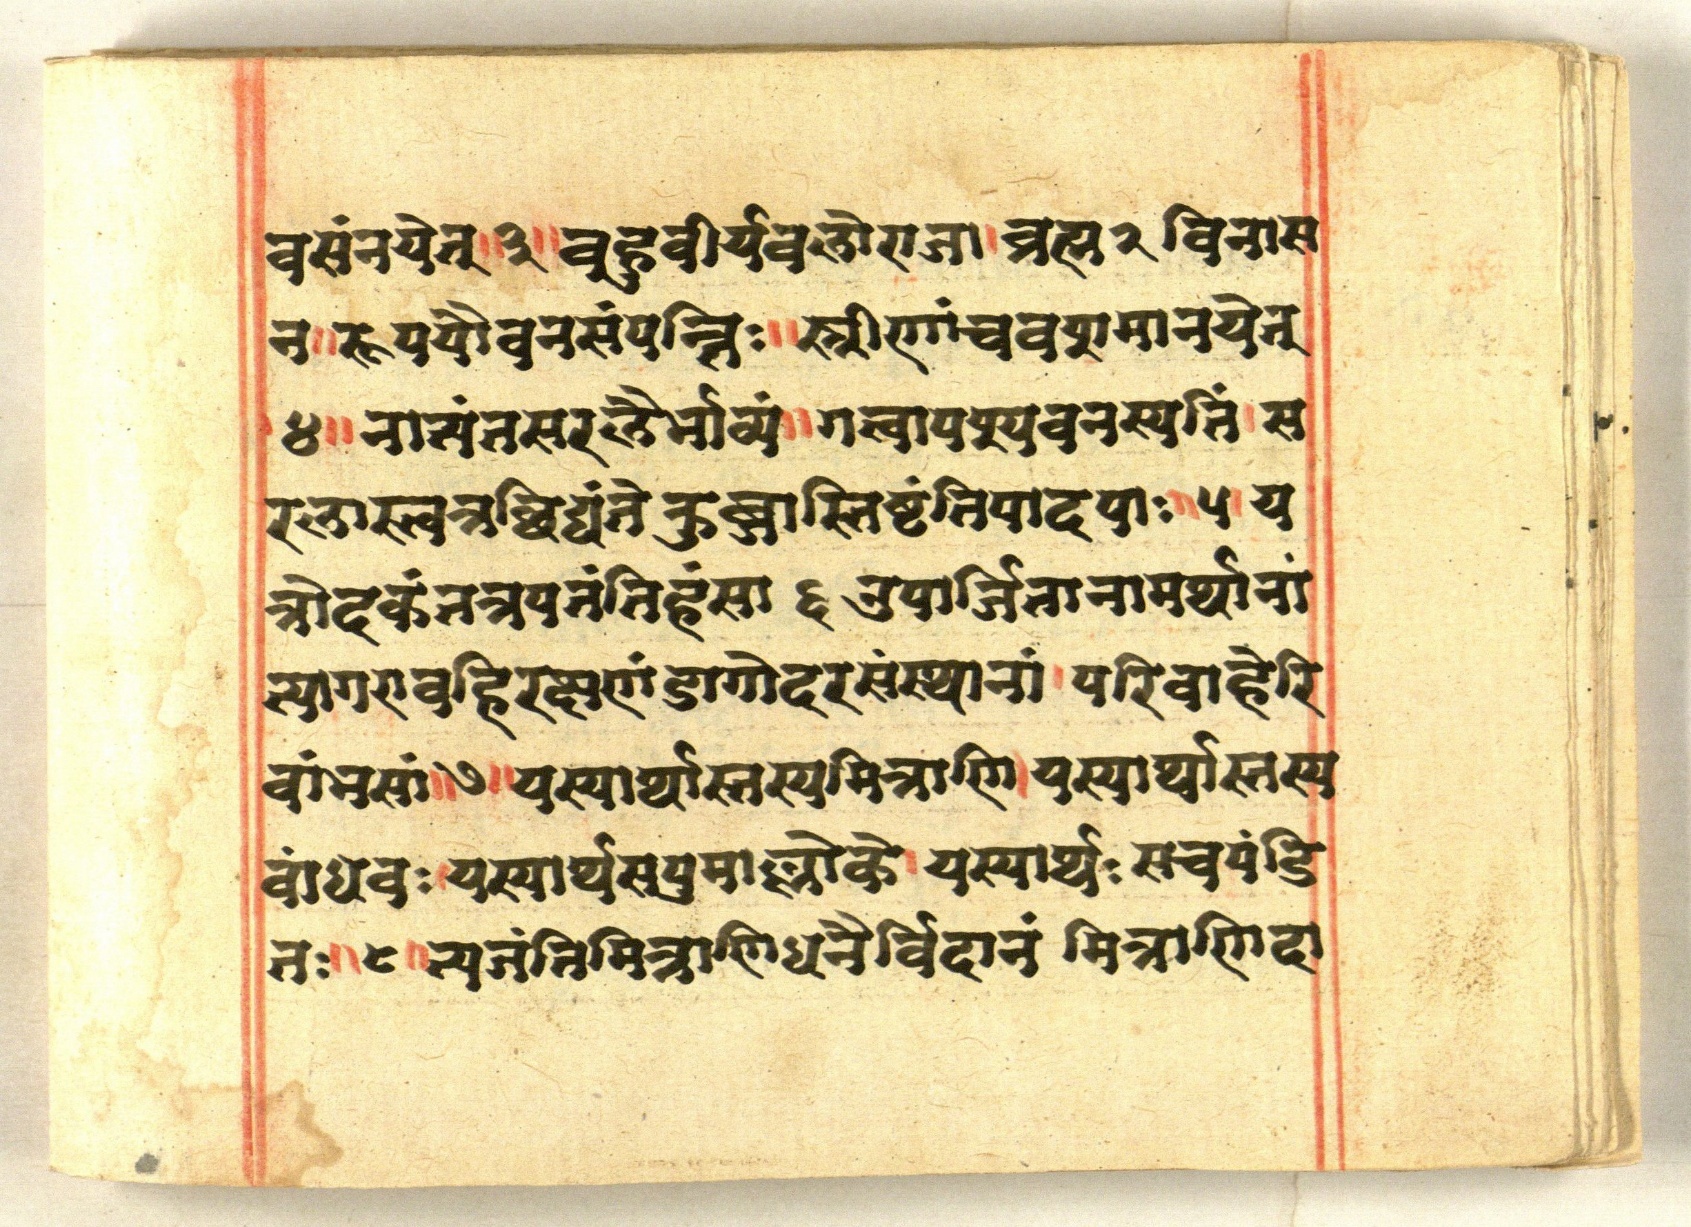 वसंनयेत् ॥ ३ ॥ वुहुवीर्यवलोराजा । व्रह्म २ विनास
न ॥ रूपयौवनसंपन्निः ॥ स्त्रीणांचवपुमानयेत्
४ ॥ नात्यंतसरलैर्भाव्यं ॥ गत्वापश्यवनस्पतिं । स
रलास्तत्रछिद्यंते कुब्जास्तिष्ठंतिपादपाः ॥ ५ ॥ य
त्रोदकंतत्रपतंतिहंसा ६ नुपार्जितानामर्थानां
त्यागएवहिरक्षणं डागोदरसंस्थानां । परिवाहेरि
वांभसां ॥ ७ ॥ यस्यार्थास्तस्यमित्राणि । यस्यार्थास्तस्य
वांधवः । यस्यार्थसपुमाल्लोके । यस्यार्थः सचपंडि
तः ॥ ८ ॥ त्यजंतिमित्राणिधनैर्विदानं मित्राणिदा